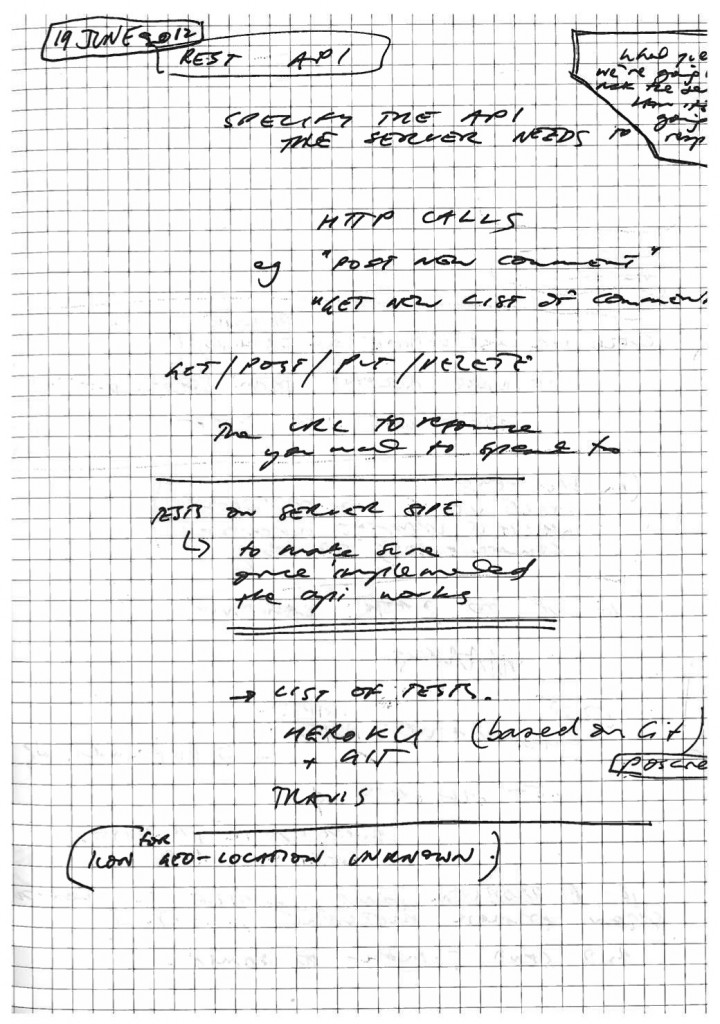 19 JUNE 2012
REST API
what
we're going
ask the se
how it's
going
resp
SPECIFY THE API
THE SERVER NEEDS TO
HTTP CALLS
eg "POST NEW comment"
"GET NEW LIST OF COMMEN
GET / POST / PUT / DELETE
The URL TO resource
you want to speak to
TESTS ON SERVER SIDE
↳ to make sure
once implemented
the api works
→ LIST OF TESTS.
HEROKU (based on Git)
+ GIT
POSGRE
TRAVIS
(ICON FOR GEO-LOCATION UNKNOWN.)